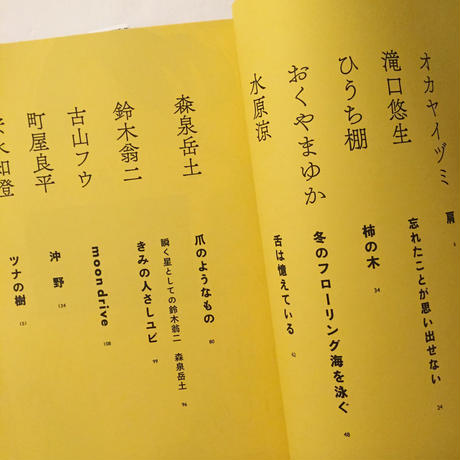 オカヤイヅミ
肩
滝口悠生
忘れたことが思い出せない 24
ひうち棚
柿の木 34
おくやまゆか
冬のフローリング海を泳ぐ 48
水原涼
舌は憶えている
森泉岳土
爪のようなもの 80
瞬く星としての鈴木翁二 森泉岳土 96
鈴木翁二
きみの人さしユビ 99
古山フウ
moondrive 108
町屋良平
沖野 134
木知登
ツナの樹 151